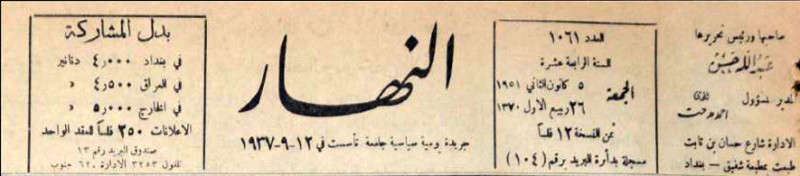 صاحبها ورئيس تحريرها
عبد الله حسن
المدير المسؤول
احمد مدحت
الادارة شارع حسان بن ثابت
طبعت بمطبعة شفيق - بغداد
العدد ١٠٦١
السنة الرابعة عشرة
الجمعة
٥ كانون الثاني ١٩٥١
٢٦ ربيع الاول ١٣٧٠
ثمن النسخة ١٢ فلساً
مسجلة بدائرة البريد برقم (١٠٤)
النهار
جريدة يومية سياسية جامعة تأسست في ١٢-٩-١٩٣٧
بدل المشاركة
في بغداد ٤٫٠٠٠ دنانير
في العراق ٤٫٥٠٠ »
في الخارج ٥٫٠٠٠ »
الاعلانات ٢٥٠ فلساً للعقد الواحد
صندوق البريد رقم ١٣
تلفون ٣٢٥٣ الادارة ٦٢ جنوب